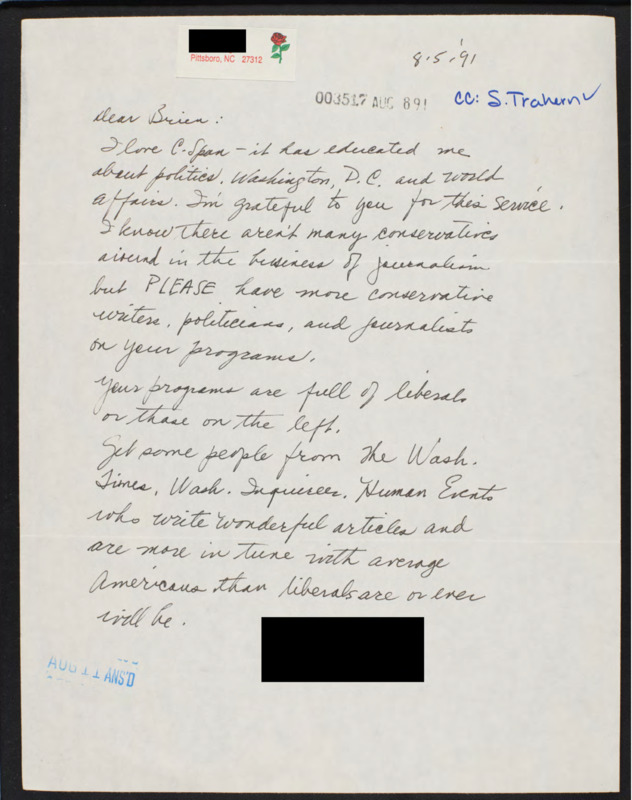 Pittsboro, NC 27312
8.5.'91
003517 AUG 891
cc: S. Trahern ✓
Dear Brien:
I love C-Span - it has educated me
about politics, Washington, D.C. and world
affairs. I'm grateful to you for this service.
I know there aren't many conservatives
around in the business of journalism
but PLEASE have more conservative
writers, politicians, and journalists
on your programs.
Your programs are full of liberals
or those on the left.
Get some people from the Wash.
Times, Wash. Inquirer, Human Events
who write wonderful articles and
are more in tune with average
Americans than liberals are or ever
will be.
AUG 11 ANS'D